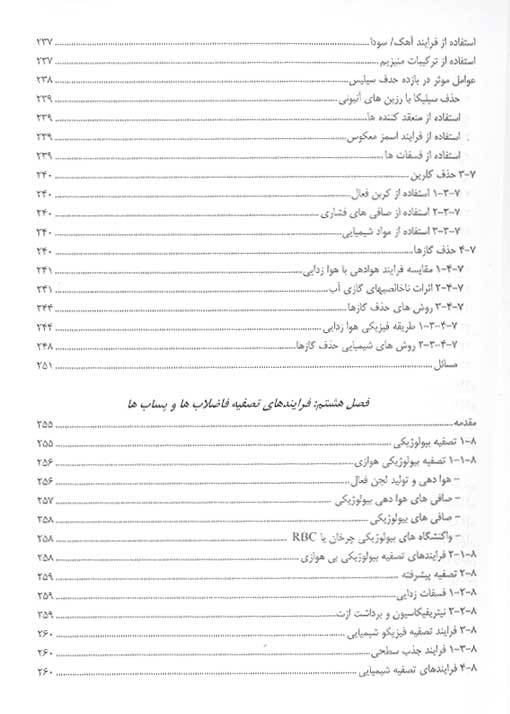 استفاده از فرایند آهک/ سودا ... ۲۳۷
استفاده از ترکیبات منیزیم ... ۲۳۷
عوامل موثر در بازده حذف سیلیس ... ۲۳۸
حذف سیلیکا با رزین های آنیونی ... ۲۳۹
استفاده از منعقد کننده ها ... ۲۳۹
استفاده از فرایند اسمز معکوس ... ۲۳۹
استفاده از فسفات ها ... ۲۳۹
۷-۳ حذف کلرین ... ۲۴۰
۷-۳-۱ استفاده از کربن فعال ... ۲۴۰
۷-۳-۲ استفاده از صافی های فشاری ... ۲۴۰
۷-۳-۳ استفاده از مواد شیمیایی ... ۲۴۰
۷-۴ حذف گازها ... ۲۴۰
۷-۴-۱ مقایسه فرایند هوادهی با هوا زدایی ... ۲۴۱
۷-۴-۲ اثرات ناخالصیهای گازی آب ... ۲۴۱
۷-۴-۳ روش های حذف گازها ... ۲۴۴
۷-۴-۳-۱ طریقه فیزیکی هوا زدایی ... ۲۴۴
۷-۴-۳-۲ روش های شیمیایی حذف گازها ... ۲۴۸
مسائل ... ۲۵۱
فصل هشتم: فرایندهای تصفیه فاضلاب ها و پساب ها
مقدمه ... ۲۵۵
۸-۱ تصفیه بیولوژیکی ... ۲۵۵
۸-۱-۱ تصفیه بیولوژیکی هوازی ... ۲۵۶
- هوا دهی و تولید لجن فعال ... ۲۵۶
- صافی های هوا دهی بیولوژیکی ... ۲۵۷
- صافی های بیولوژیکی ... ۲۵۸
- واکنشگاه های بیولوژیکی چرخان یا RBC ... ۲۵۸
۸-۱-۲ فرایندهای تصفیه بیولوژیکی بی هوازی ... ۲۵۸
۸-۲ تصفیه پیشرفته ... ۲۵۹
۸-۲-۱ فسفات زدایی ... ۲۵۹
۸-۲-۲ نیتریفیکاسیون و برداشت ازت ... ۲۵۹
۸-۳ فرایند تصفیه فیزیکو شیمیایی ... ۲۶۰
۸-۳-۱ فرایند جذب سطحی ... ۲۶۰
۸-۴ فرایندهای تصفیه شیمیایی ... ۲۶۰